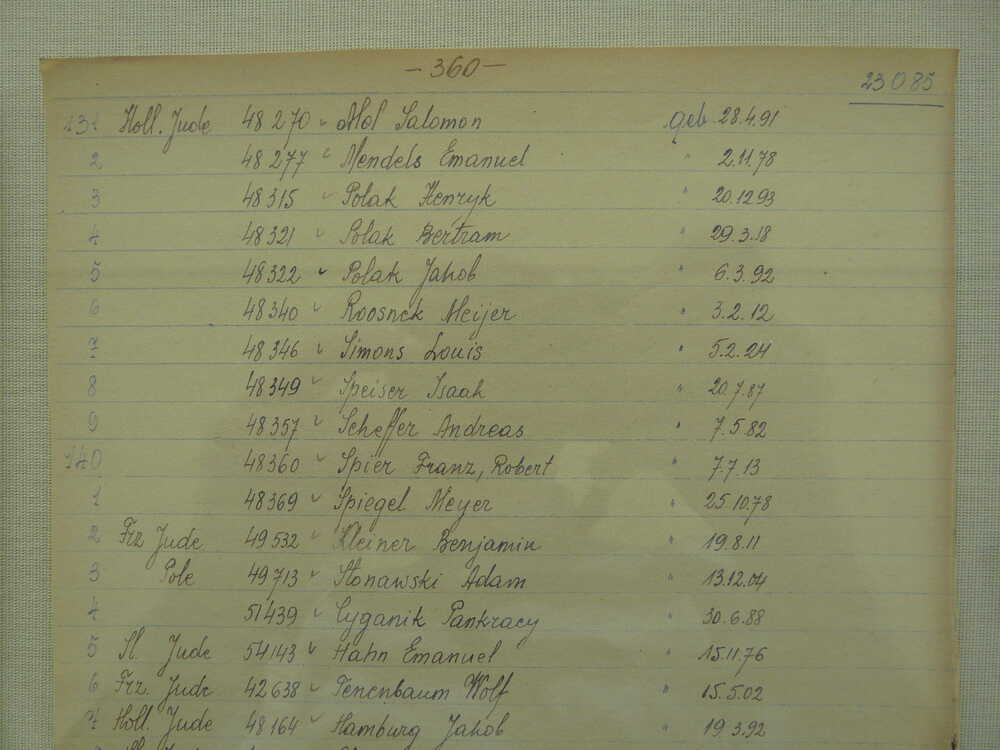 - 360 -
23085
131 Holl. Jude 48270 Mol Salomon geb 28.4.91
2 48277 Mendels Emanuel " 2.11.78
3 48315 Polak Henryk " 20.12.93
4 48321 Polak Bertram " 29.3.18
5 48322 Polak Jakob " 6.3.92
6 48340 Roosnek Meijer " 3.2.12
7 48346 Simons Louis " 5.2.24
8 48349 Speiser Isaak " 20.7.87
9 48357 Scheffer Andreas " 7.5.82
140 48360 Spier Franz, Robert " 7.7.13
1 48369 Spiegel Meyer " 25.10.78
2 Frz Jude 49532 Kleiner Benjamin " 19.8.11
3 Pole 49713 Słonawski Adam " 13.12.04
4 51439 Cyganik Pankracy " 30.6.88
5 Sl. Jude 54143 Hahn Emanuel " 15.11.76
6 Frz. Jude 42638 Tenenbaum Wolf " 15.5.02
7 Holl. Jude 48164 Hamburg Jakob " 19.3.92